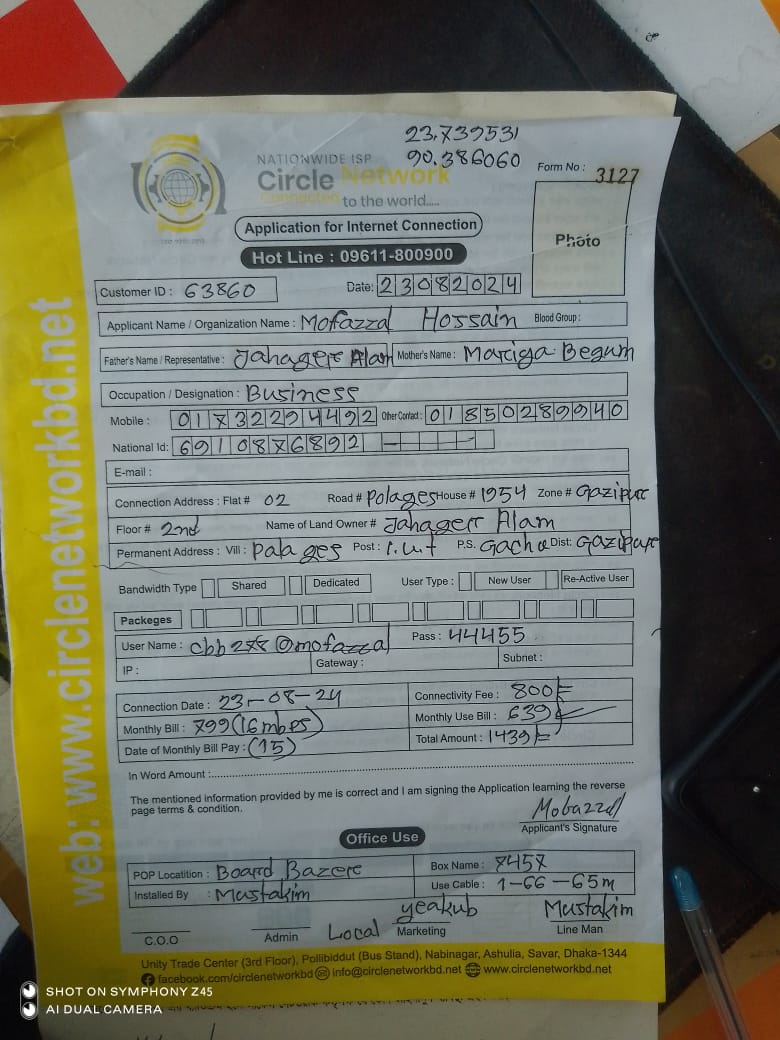 23.739531
90.386060
NATIONWIDE ISP
Circle Network
Connected to the world.....
Form No : 3127
Application for Internet Connection
Hot Line : 09611-800900
Photo
Customer ID : 63860
Date: 23082024
Applicant Name / Organization Name : Mofazzal Hossain Blood Group :
Father's Name / Representative : Jahager Alam Mother's Name : Begum
Occupation / Designation : Business
Mobile : 01732294492 Other Contact : 01850289940
National Id: 6910876892
E-mail :
Connection Address : Flat # 02 Road # Polages House # 1954 Zone # Gazipur
Floor # 2nd Name of Land Owner # Jahager Alam
Permanent Address : Vill : Palages Post : I.U.T P.S. Gacha Dist: Gazipur
Bandwidth Type Shared Dedicated User Type : New User Re-Active User
Packeges
User Name : cbb278@mofazzal Pass : 44455
IP : Gateway : Subnet :
Connection Date : 23-08-24 Connectivity Fee : 800/=
Monthly Bill : 799 (16 mbps) Monthly Use Bill : 639/=
Date of Monthly Bill Pay : (15) Total Amount : 1439/=
In Word Amount :
The mentioned information provided by me is correct and I am signing the Application learning the reverse
page terms & condition.
Applicant's Signature
Office Use
POP Locatition : Board Bazer Box Name : 7457
Installed By : Mustakim Use Cable : 1-66-65m
C.O.O Admin Local yeakub Marketing Mustakim Line Man
Unity Trade Center (3rd Floor), Pollibiddut (Bus Stand), Nabinagar, Ashulia, Savar, Dhaka-1344
facebook.com/circlenetworkbd info@circlenetworkbd.net www.circlenetworkbd.net
web: www.circlenetworkbd.net
SHOT ON SYMPHONY Z45
AI DUAL CAMERA